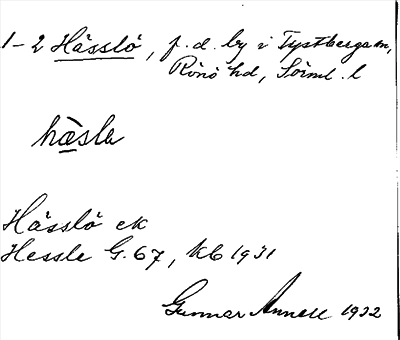 1-2 Hässlö, f.d. by i Tystberga sn,
Rönö hd, Sörml. l
hàsla
Hässlö ek
Hessle G. 67, kb 1931
Gunnar Annell 1932